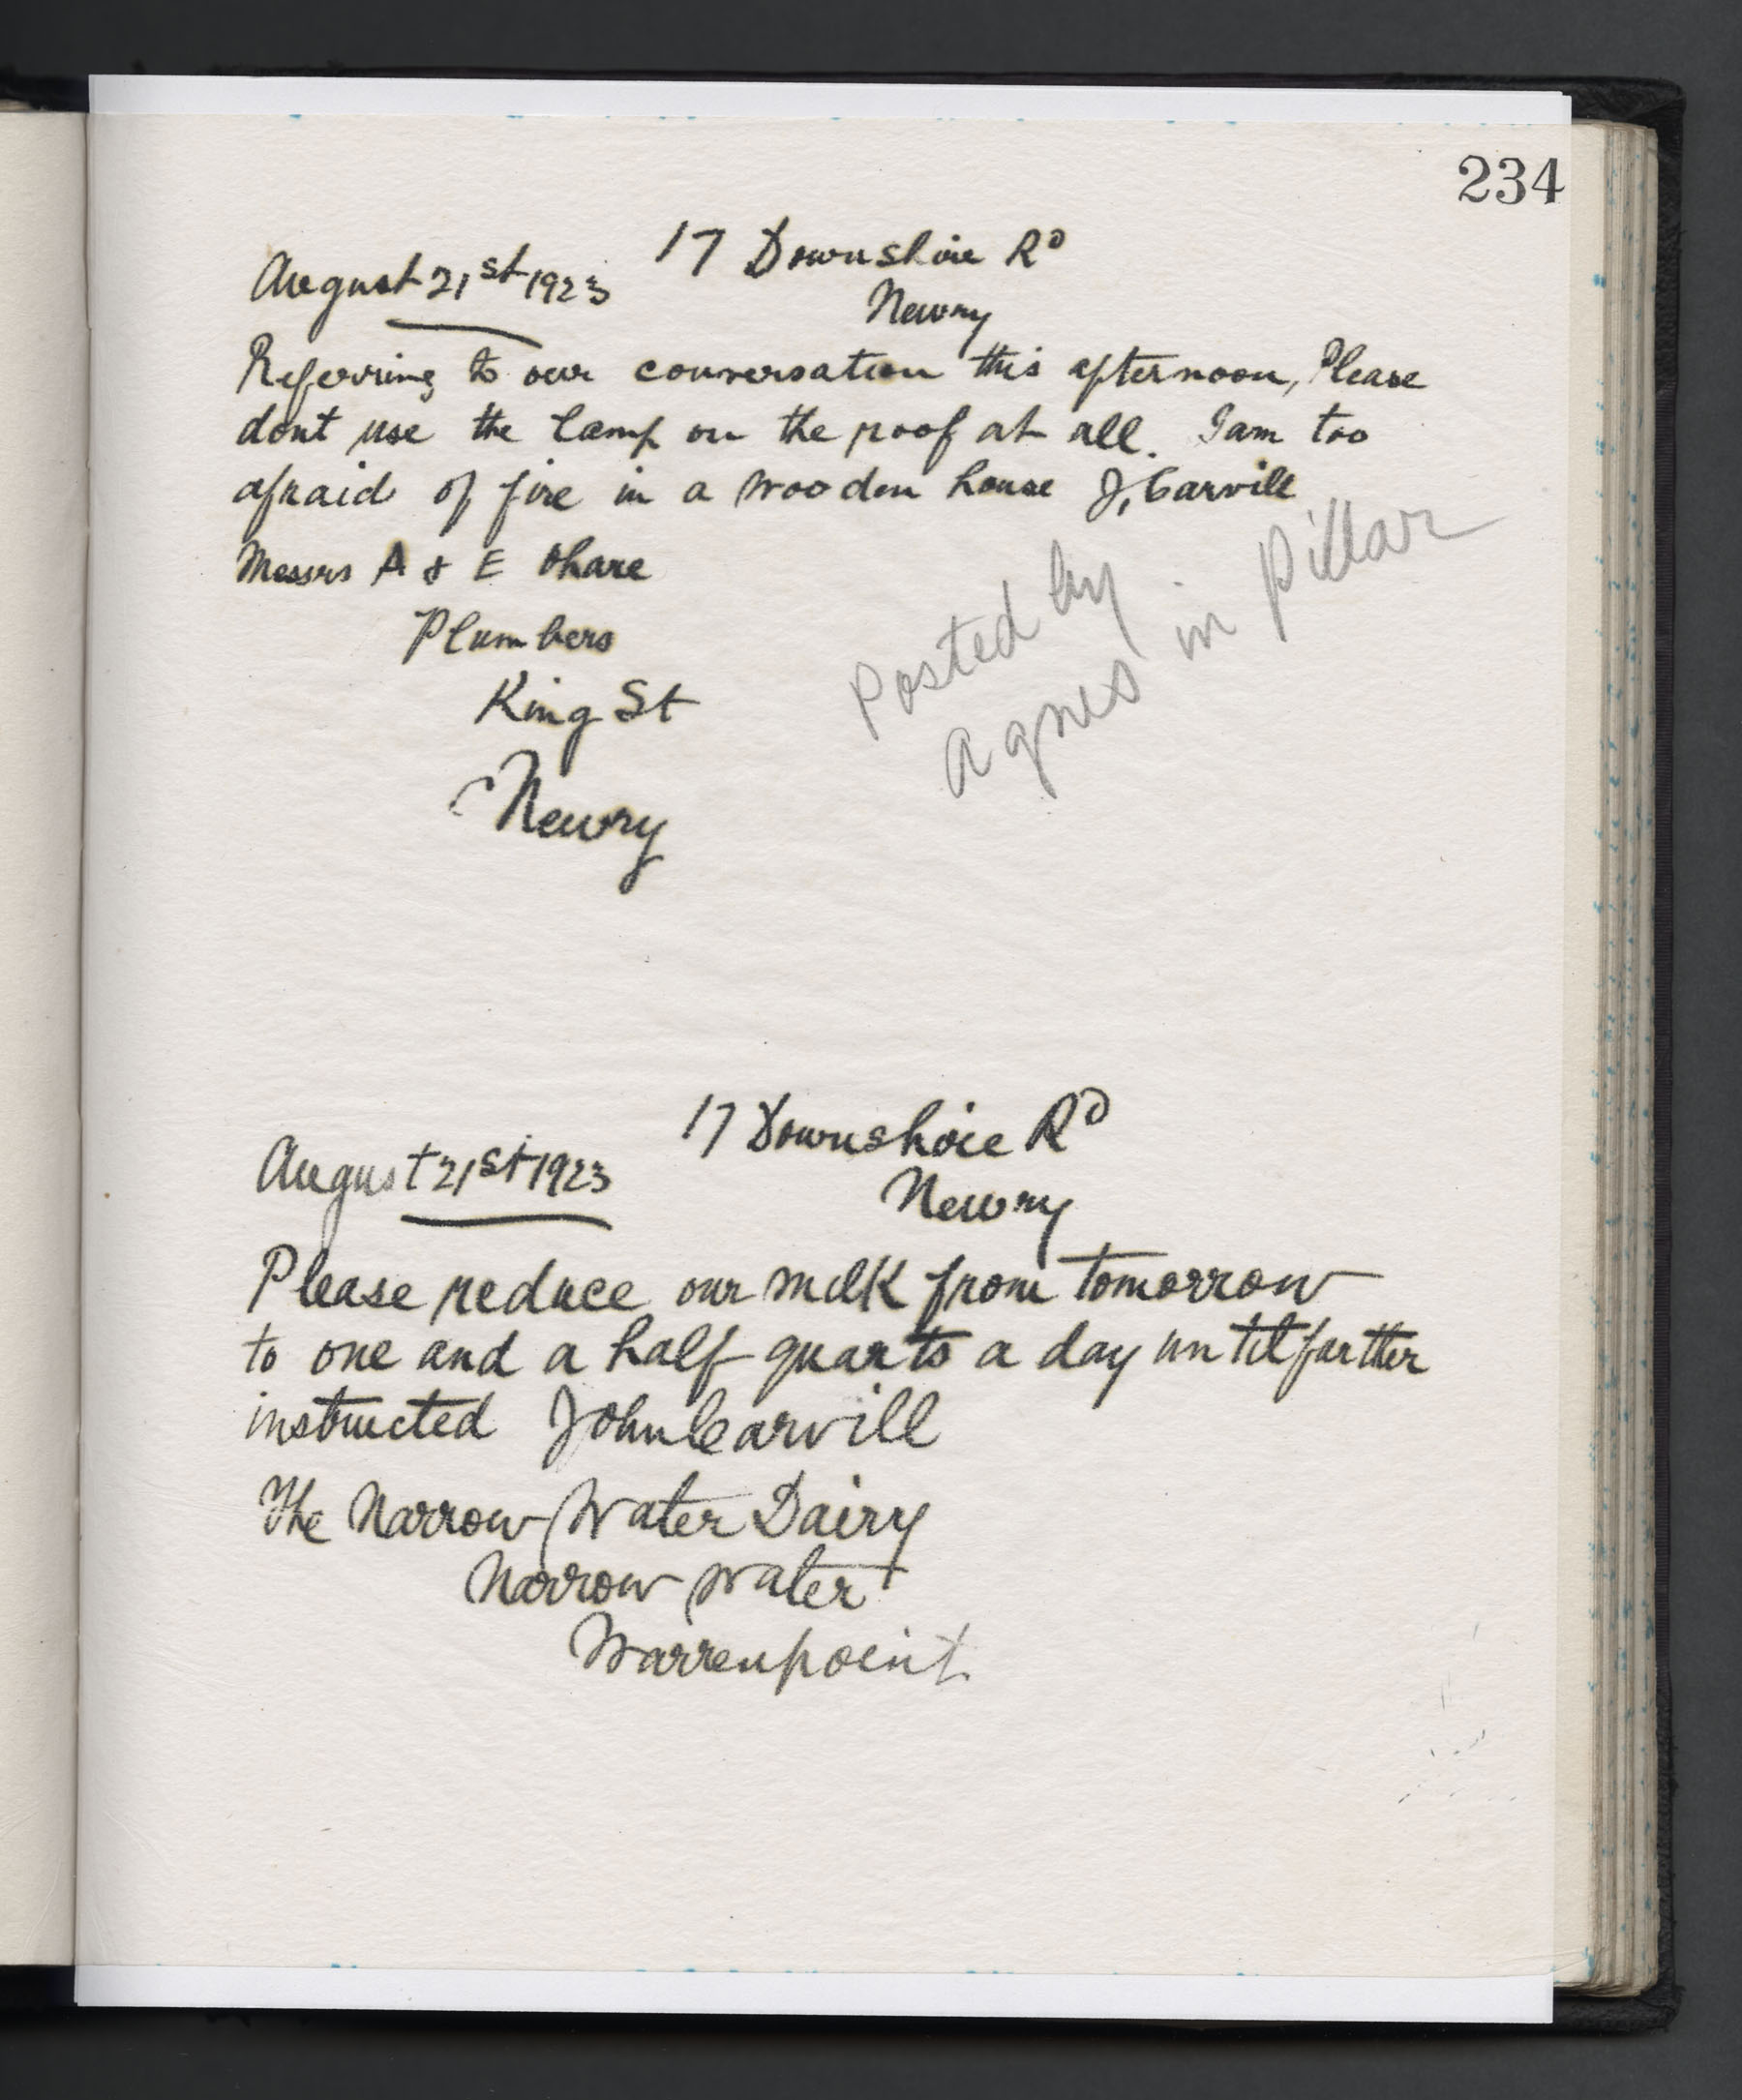 234
17 Downshire Rd
August 21st 1923
Newry
Referring to our conversation this afternoon, Please
dont use the lamp on the roof at all. I am too
afraid of fire in a wooden house J, Carvill
Messrs A & E Ohare
Plumbers
King St
Newry
Posted by
Agnes in Pillar
17 Downshire Rd
August 21st 1923
Newry
Please reduce our milk from tomorrow
to one and a half quarts a day until further
instructed John Carvill
The Narrow Water Dairy
Narrow Water
Warrenpoint